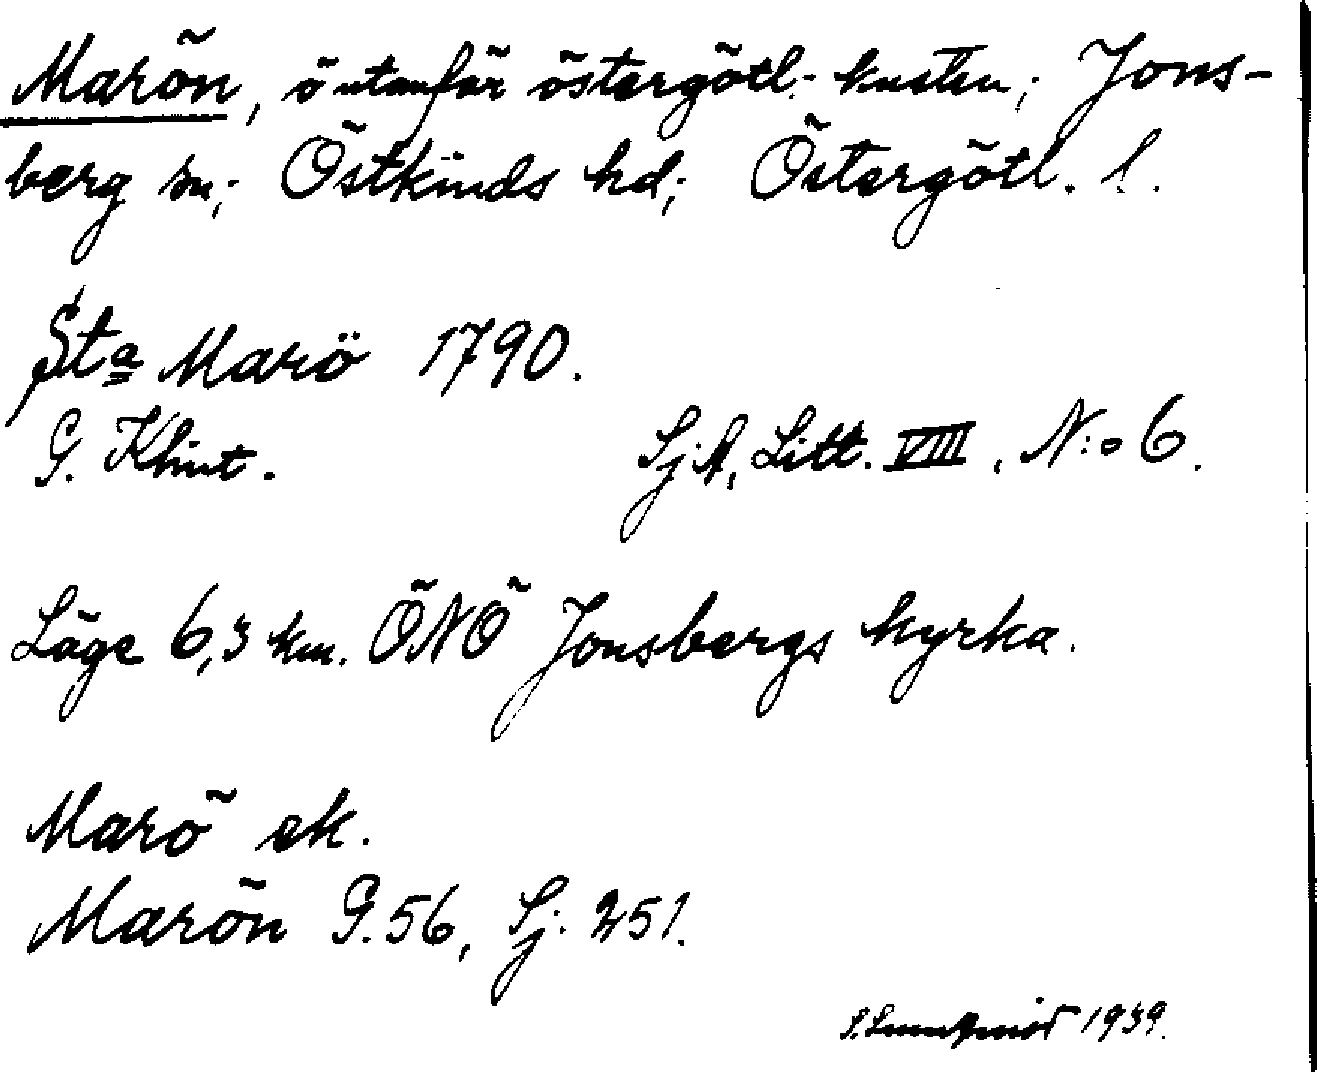 Marön, ö utanför östergötl. kusten; Jons-
berg sn; Östkinds hd; Östergötl. l.
Sta Marö 1790.
G. Klint. Sj.A, Litt. VIII, N:o 6.
Läge 6,3 km. ÖNÖ Jonsbergs kyrka.
Marö ek.
Marön G.56, Sj. 251.
1939.